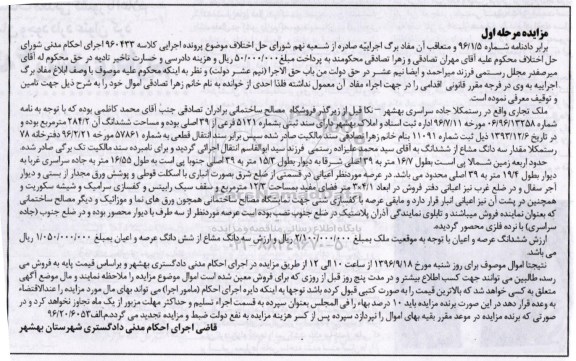 مزایده مرحله اول
برابر دادنامه شماره ۹۶/۱/۵ و متعاقب آن مفاد برگ اجراییه صادره از شعبه نهم شورای حل اختلاف موضوع پرونده اجرایی کلاسه ۹۶۰۴۳۳ اجرای احکام مدنی شورای
حل اختلاف محکوم علیه آقای مهران تصادقی و زهرا تصادقی محکومند به پرداخت مبلغ ۵۰/۰۰۰/۰۰۰ ریال و هزینه دادرسی و خسارت تاخیر تادیه در حق محکوم له آقای
میرصفدر مجلل رستمی فرزند میراحمد و ایضا نیم عشر در حق دولت من باب حق الاجرا (نیم عشر دولت) و نظر به اینکه محکوم علیه موصوف با وصف ابلاغ مفاد برگ
اجراییه به وی در فرجه مقرر قانونی اقدامی را در جهت اجراء مفاد آن معمول نداشته فلذا احدی از خوانده به نام خانم زهرا تصادقی اموال خود را به شرح ذیل جهت تامین
و توقیف معرفی نموده است.
ملک تجاری واقع در رستمکلا جاده سراسری بهشهر - نکا قبل از زیرگذر فروشگاه مصالح ساختمانی برادران تصادقی جنب آقای محمد کاظمی بوده که با توجه به نامه
شماره ۶/۹۶/۱۳۲۵۸ مورخه ۹۶/۷/۱۱ اداره ثبت اسناد و املاک بهشهر دارای سند ثبتی بشماره ۵۱۲۱ فرعی از ۳۹ اصلی بوده و مساحت ششدانگ آن ۲۸۴/۲ مترمربع بوده و
در تاریخ ۱۳۹۳/۱۲/۶ ذیل ثبت شماره ۱۱۰۹۱ بنام خانم زهرا تصادقی سند مالکیت صادر شده سپس برابر سند انتقال قطعی به شماره ۵۷۸۶۱ مورخه ۹۶/۲/۳۱ دفترخانه ۷۸
رستمکلا مقدار سه دانگ مشاع از ششدانگ به آقای سید محمد علیزاده رستمی فرزند سید ابوالقاسم انتقال اجرائی گردید و برای نامبرده سند مالکیت تک برگی صادر شده.
حدود اربعه زمین شمالا پی است بطول ۱۶/۷ متر به ۳۹ اصلی شرقا به دیوار بطول ۱۵/۳ متر به ۳۹ اصلی جنوبا پی است به طول ۱۶/۵۵ متر به جاده سراسری غربا به
دیوار بطول ۱۹/۴ متر به ۳۹ اصلی محدود می باشد. در عرصه موردنظر اعیانی در قسمتی از ضلع شرق بصورت انباری با اسکلت قوطی و پوشش ورق مجدار از بستی و دیوار
آجر سفال و در ضلع غرب نیز اعیانی دفتر فروش در ابعاد ۳*۴/۱ متر فضای مفید بمساحت ۱۲/۳ مترمربع و سقف سبک رابیتس و کفسازی سرامیک و شیشه سکوریت و
همچنین در پشت آن نیز اعیانی انبار قرار دارد و مابقی عرصه با کفسازی بتنی جهت نمایشگاه مصالح ساختمانی همچون ورق های نما و موزائیک و دیگر مصالح ساختمانی
که بعنوان نماینده فروش میباشند و تابلوی نمایندگی آذران پلاستیک در ضلع جنوب نصب بوده است عرصه موردنظر از سه طرف با دیوار محصور بوده و در ضلع جنوب (جاده
سراسری) با نرده فلزی محصور گردیده.
ارزش ششدانگ عرصه و اعیان با توجه به موقعیت ملک بمبلغ ۲/۱۰۰/۰۰۰/۰۰۰ ریال و ارزش سه دانگ مشاع از شش دانگ عرصه و اعیان بمبلغ ۱/۰۵۰/۰۰۰/۰۰۰ ریال می
باشد.
نتیجتا اموال موصوف برای روز شنبه مورخ ۱۳۹۶/۹/۱۸ از ساعت ۱۰ الی ۱۲ از طریق مزایده در اجرای احکام مدنی دادگستری بهشهر و براساس قیمت پایه به فروش می
رسد، طالبین می توانند جهت کسب اطلاع بیشتر و در مدت پنج روز قبل از روزی که برای فروش معین شده است اموال موضوع مزایده را ملاحظه نمایند و مال موضع آگهی
متعلق به کسی خواهد شد که بالاترین قیمت را به صورت کتبی قبول کرده باشد توجها به اینکه دایره اجرای احکام (مامور اجرا) می تواند بهای مال مورد مزایده را عندالاقتضاء
به وعده قرار دهد در این صورت برنده مزایده باید ۱۰ درصد بهاء را فی المجلس بعنوان سپرده به قسمت اجراء تسلیم و حداکثر مهلت مزبور از یک ماه تجاوز نخواهد کرد و در
صورتی که برنده مزایده در موعد مقرر بقیه بهای اموال را نپردازد سپرده پس از کسر هزینه مزایده به نفع دولت ضبط و مزایده تجدید می گردد.م.الف ۹۶/۲۰/۶۰۵۳
قاضی اجرای احکام مدنی دادگستری شهرستان بهشهر